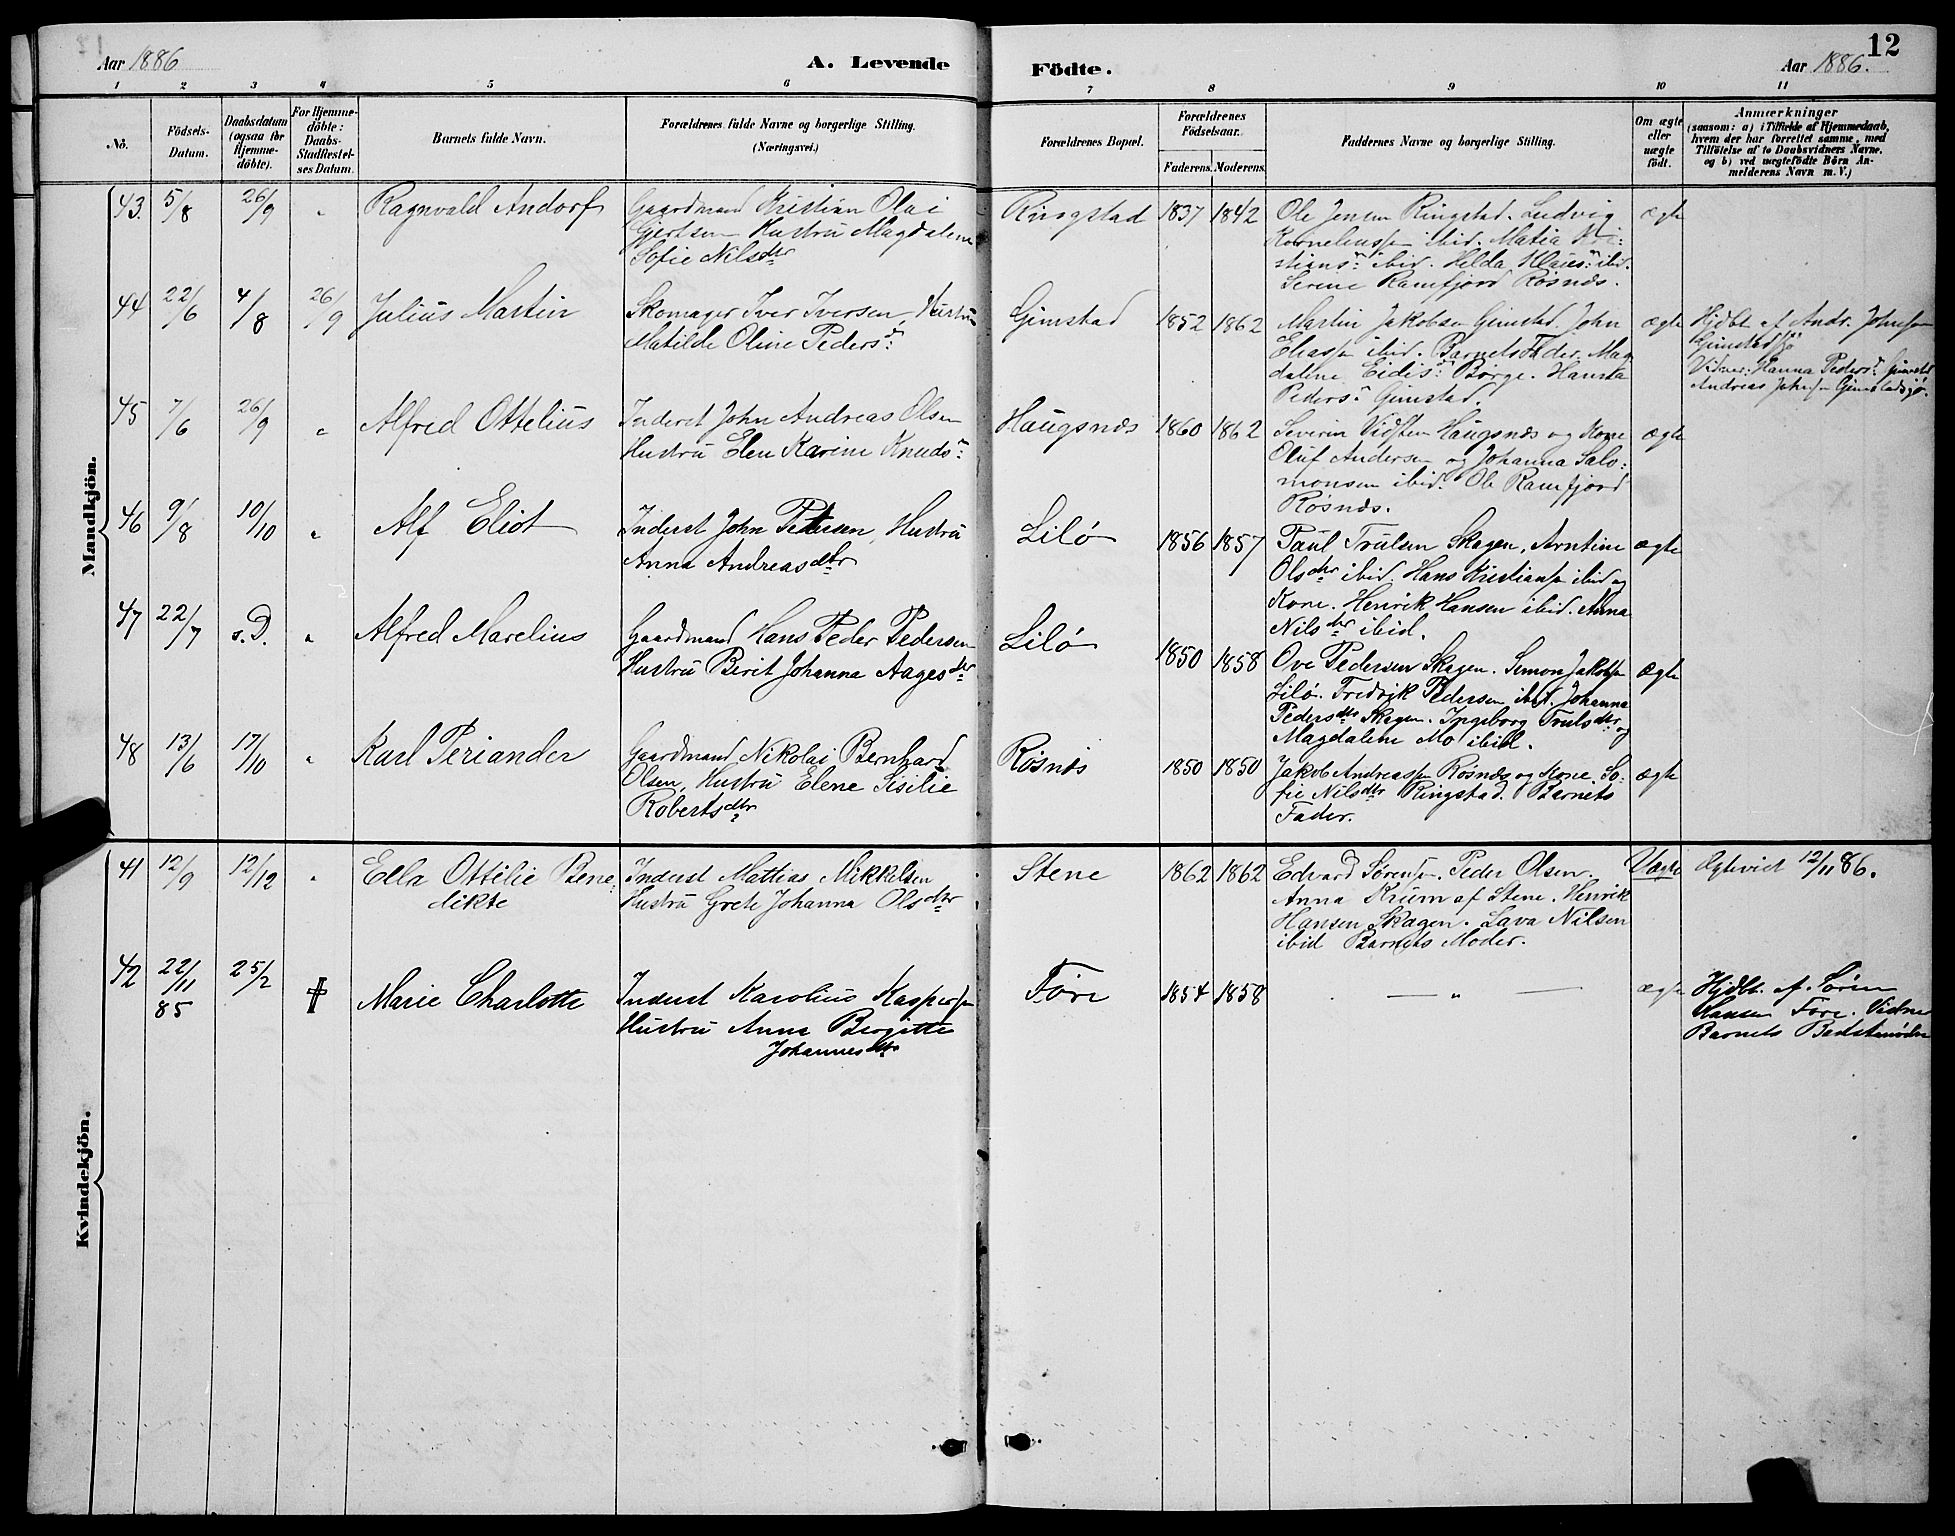 Aar 1886
A. Levende Födte.
12
Aar 1886.
1 2 3 4 5 6 7 8 9 10 11
No.
Födsels-Datum.
Daabsdatum (ogsaa for Hjemmedöbte).
For Hjemmedöbte: Daabs-Stadfæstelses Datum.
Barnets fulde Navn.
Forældrenes fulde Navne og borgerlige Stilling. (Næringsvei.)
Forældrenes Bopæl.
Forældrenes Födselsaar.
Faderens. Moderens.
Faddernes Navne og borgerlige Stilling.
Om ægte eller uægte födt.
Anmærkninger
(saasom: a) i Tilfælde af Hjemmedaab, hvem der har forrettet samme, med Tilföielse af to Daabsvidners Navne, og b) ved uægtefödte Börn Anmelderens Navn m. V.)
Mandkjön.
43 5/8 26/9 " Ragnvald Andorf
Gaardmand Kristian Olai
Gjertsen Hustru Magdalene
Sofie Nilsdtr
Ringstad 1837 1842
Ole Jensen Ringstad. Ludvig
Korneliussen ibid. Matia Kri-
stians dr ibid. Hilda Klaus dr ibid.
Serene Ramfjord Rosnæs.
ægte
44 22/6 4/8 26/9 Julius Martin
Skomager Iver Iversen, Hustru
Matilde Oline Peders dr
Gimstad 1852 1862
Martin Jakobsen Gimstad. John
Eliassen ibid. Barnets Fader. Mag
dalene Eidis dr Börge. Hanna
Peders dr Gimstad.
ægte
Hjdbt af Andr. Johnsen
Gimstadsjö
Vidner: Hanna Peders dr Gimstad
Andreas Johnsen Gimstadsjö.
45 7/6 26/9 " Alfred Ottelius
Inderst John Andreas Olsen
Hustru Elen Karine Knuds dr
Haugsnæs 1860 1862
Severin Vidsten Haugsnæs og Kone
Oluf Andersen og Johanna Salo-
monsen ibid. Ole Ramfjord
Rosnæs.
ægte
46 9/8 10/10 " Alf Eliot
Inderst John Petersen, Hustru
Anna Andreasdtr
Lilø 1856 1857
Paul Trulsen Skagen. Arntine
Olsdtr ibid. Hans Kristiansen ibid og
Kone. Henrik Hansen ibid. Anna
Nilsdtr ibid.
ægte
47 22/7 s.D. " Alfred Marelius
Gaardmand Hans Peder Pedersen
Hustru Berit Johanna Aagesdtr
Lilø 1850 1858
Ove Pedersen Skagen. Simon Jakobsen
Lilø. Fredrik Pedersen ibid. Johanna
Pedersdtr Skagen. Ingeborg Trulsdtr og
Magdalene Mo ibid.
ægte
48 13/6 17/10 " Karl Periander
Gaardmand Nikolai Bernhard
Olsen, Hustru Elene Sisilie
Robertsdtr
Rosnæs 1850 1850
Jakob Andreassen Rosnæs og Kone. So-
fie Nilsdtr Ringstad. Barnets
Fader.
ægte
Kvindekjön.
41 12/9 12/12 " Ella Ottilie Bene
dikte
Inderst Mattias Mikkelsen
Hustru Grete Johanna Olsdtr
Stene 1862 1862
Edvard Sørensen. Peder Olsen.
Anna Krum af Stene. Henrik
Hansen Skagen. Lava Nilsen
ibid Barnets Moder.
Uægte
Ægteviet 12/11 86.
42 22/11 85 25/2 † Marie Charlotte
Inderst Karolius Kaspersen
Hustru Anne Birgitte
Johannesdtr
Före 1854 1858
— " —
ægte
Hjdbt. af Sören
Hansen Före. Vidne
Barnets Bedstemoder